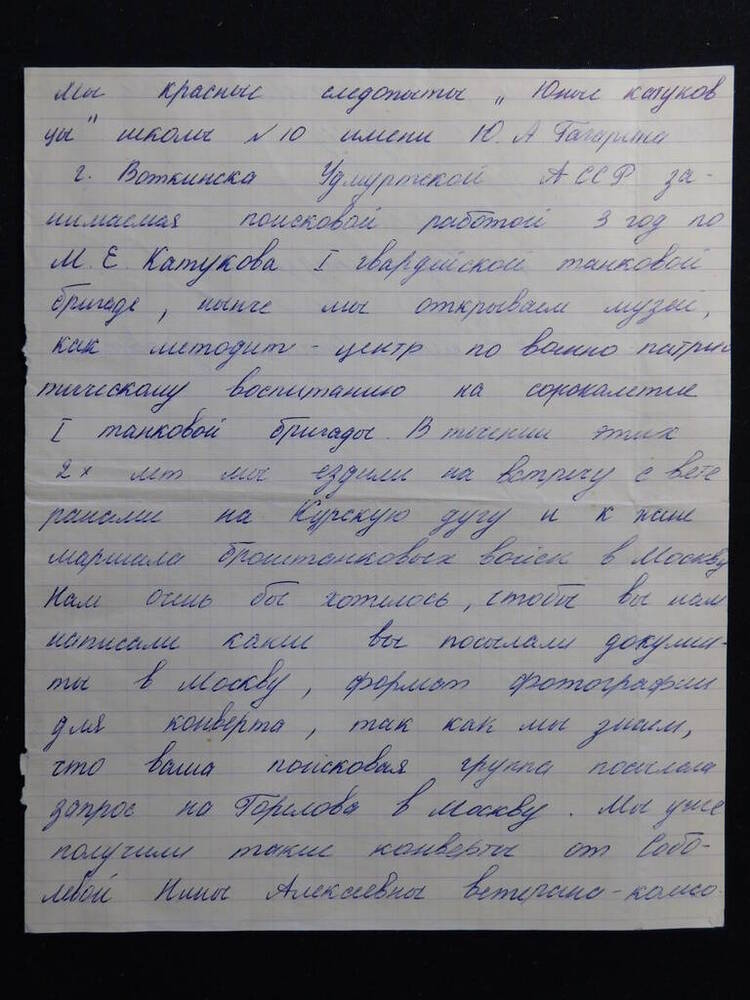 Мы красные следопыты „Юные катуков
цы" школы №10 имени Ю.А Гагарина
г. Воткинска Удмуртской АССР за-
нимаемся поисковой работой 3 год по
М.Е. Катукова I гвардейской танковой
бригаде, нынче мы открываем музей,
как методит-центр по военно патрио
тическому воспитанию на сорокалетие
I танковой бригады. В течении этих
2х лет мы ездили на встречу с вете
ранами на Курскую дугу и к жене
маршала бронетанковых войск в Москву
Нам очень бы хотелось, чтобы вы нам
написали какие вы посылали докумен-
ты в Москву, формат фотографии
для конверта, так как мы знаем,
что ваша поисковая группа посылала
запрос на Горелова в Москву. Мы уже
получили такие конверты от Собо-
левой Нины Алексеевны ветерана-комсо